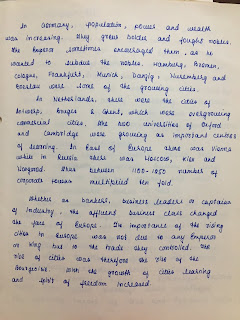 In Germany, population, power and wealth
was increasing. They grew bolder and fought nobles.
The Emperor sometimes encouraged them, as he
wanted to subdue the nobles. Hamburg, Bremen,
Cologne, Frankfurt, Munich, Danzig, Nuremberg and
Breslau were some of the growing cities.
In Netherlands, there were the cities of
Antwerp, Bruges & Ghent, which were overgrowing
commercial cities. The two universities of Oxford
and Cambridge were growing as important centres
of learning. In East of Europe there was Vienna
while in Russia there was Moscow, Kiev and
Novgorod. Thus between 1100-1350 number of
corporate houses multiplied ten fold.
Whether as bankers, business leaders or captains
of industry, the affluent business class changed
the face of Europe. The importance of the rising
cities in Europe was not due to any Emperor
or King but to the trade they controlled. The
rise of cities was therefore the rise of the
bourgeoise. With the growth of cities learning
and spirit of freedom increased.